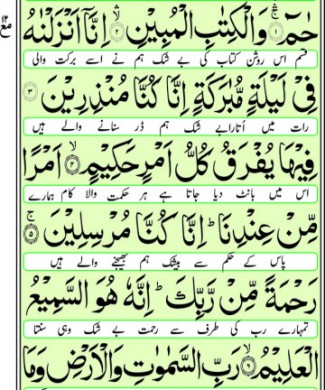 حٰمٓ ۚ﴿۱﴾ وَالْكِتٰبِ الْمُبِيْنِ ۙ﴿۲﴾ اِنَّاۤ اَنْزَلْنٰهُ
قسم اس روشن کتاب کی بے شک ہم نے اسے برکت والی
فِيْ لَيْلَةٍ مُّبٰرَكَةٍ اِنَّا كُنَّا مُنْذِرِيْنَ ﴿۳﴾
رات میں اُتارا بے شک ہم ڈر سنانے والے ہیں
فِيْهَا يُفْرَقُ كُلُّ اَمْرٍ حَكِيْمٍ ۙ﴿۴﴾ اَمْرًا
اس میں بانٹ دیا جاتا ہے ہر حکمت والا کام ہمارے
مِّنْ عِنْدِنَا ؕ اِنَّا كُنَّا مُرْسِلِيْنَ ۚ﴿۵﴾
پاس کے حکم سے بیشک ہم بھیجنے والے ہیں
رَحْمَةً مِّنْ رَّبِّكَ ؕ اِنَّهٗ هُوَ السَّمِيْعُ
تمہارے رب کی طرف سے رحمت بے شک وہی سنتا
الْعَلِيْمُ ۙ﴿۶﴾ رَبِّ السَّمٰوٰتِ وَالْاَرْضِ وَمَا